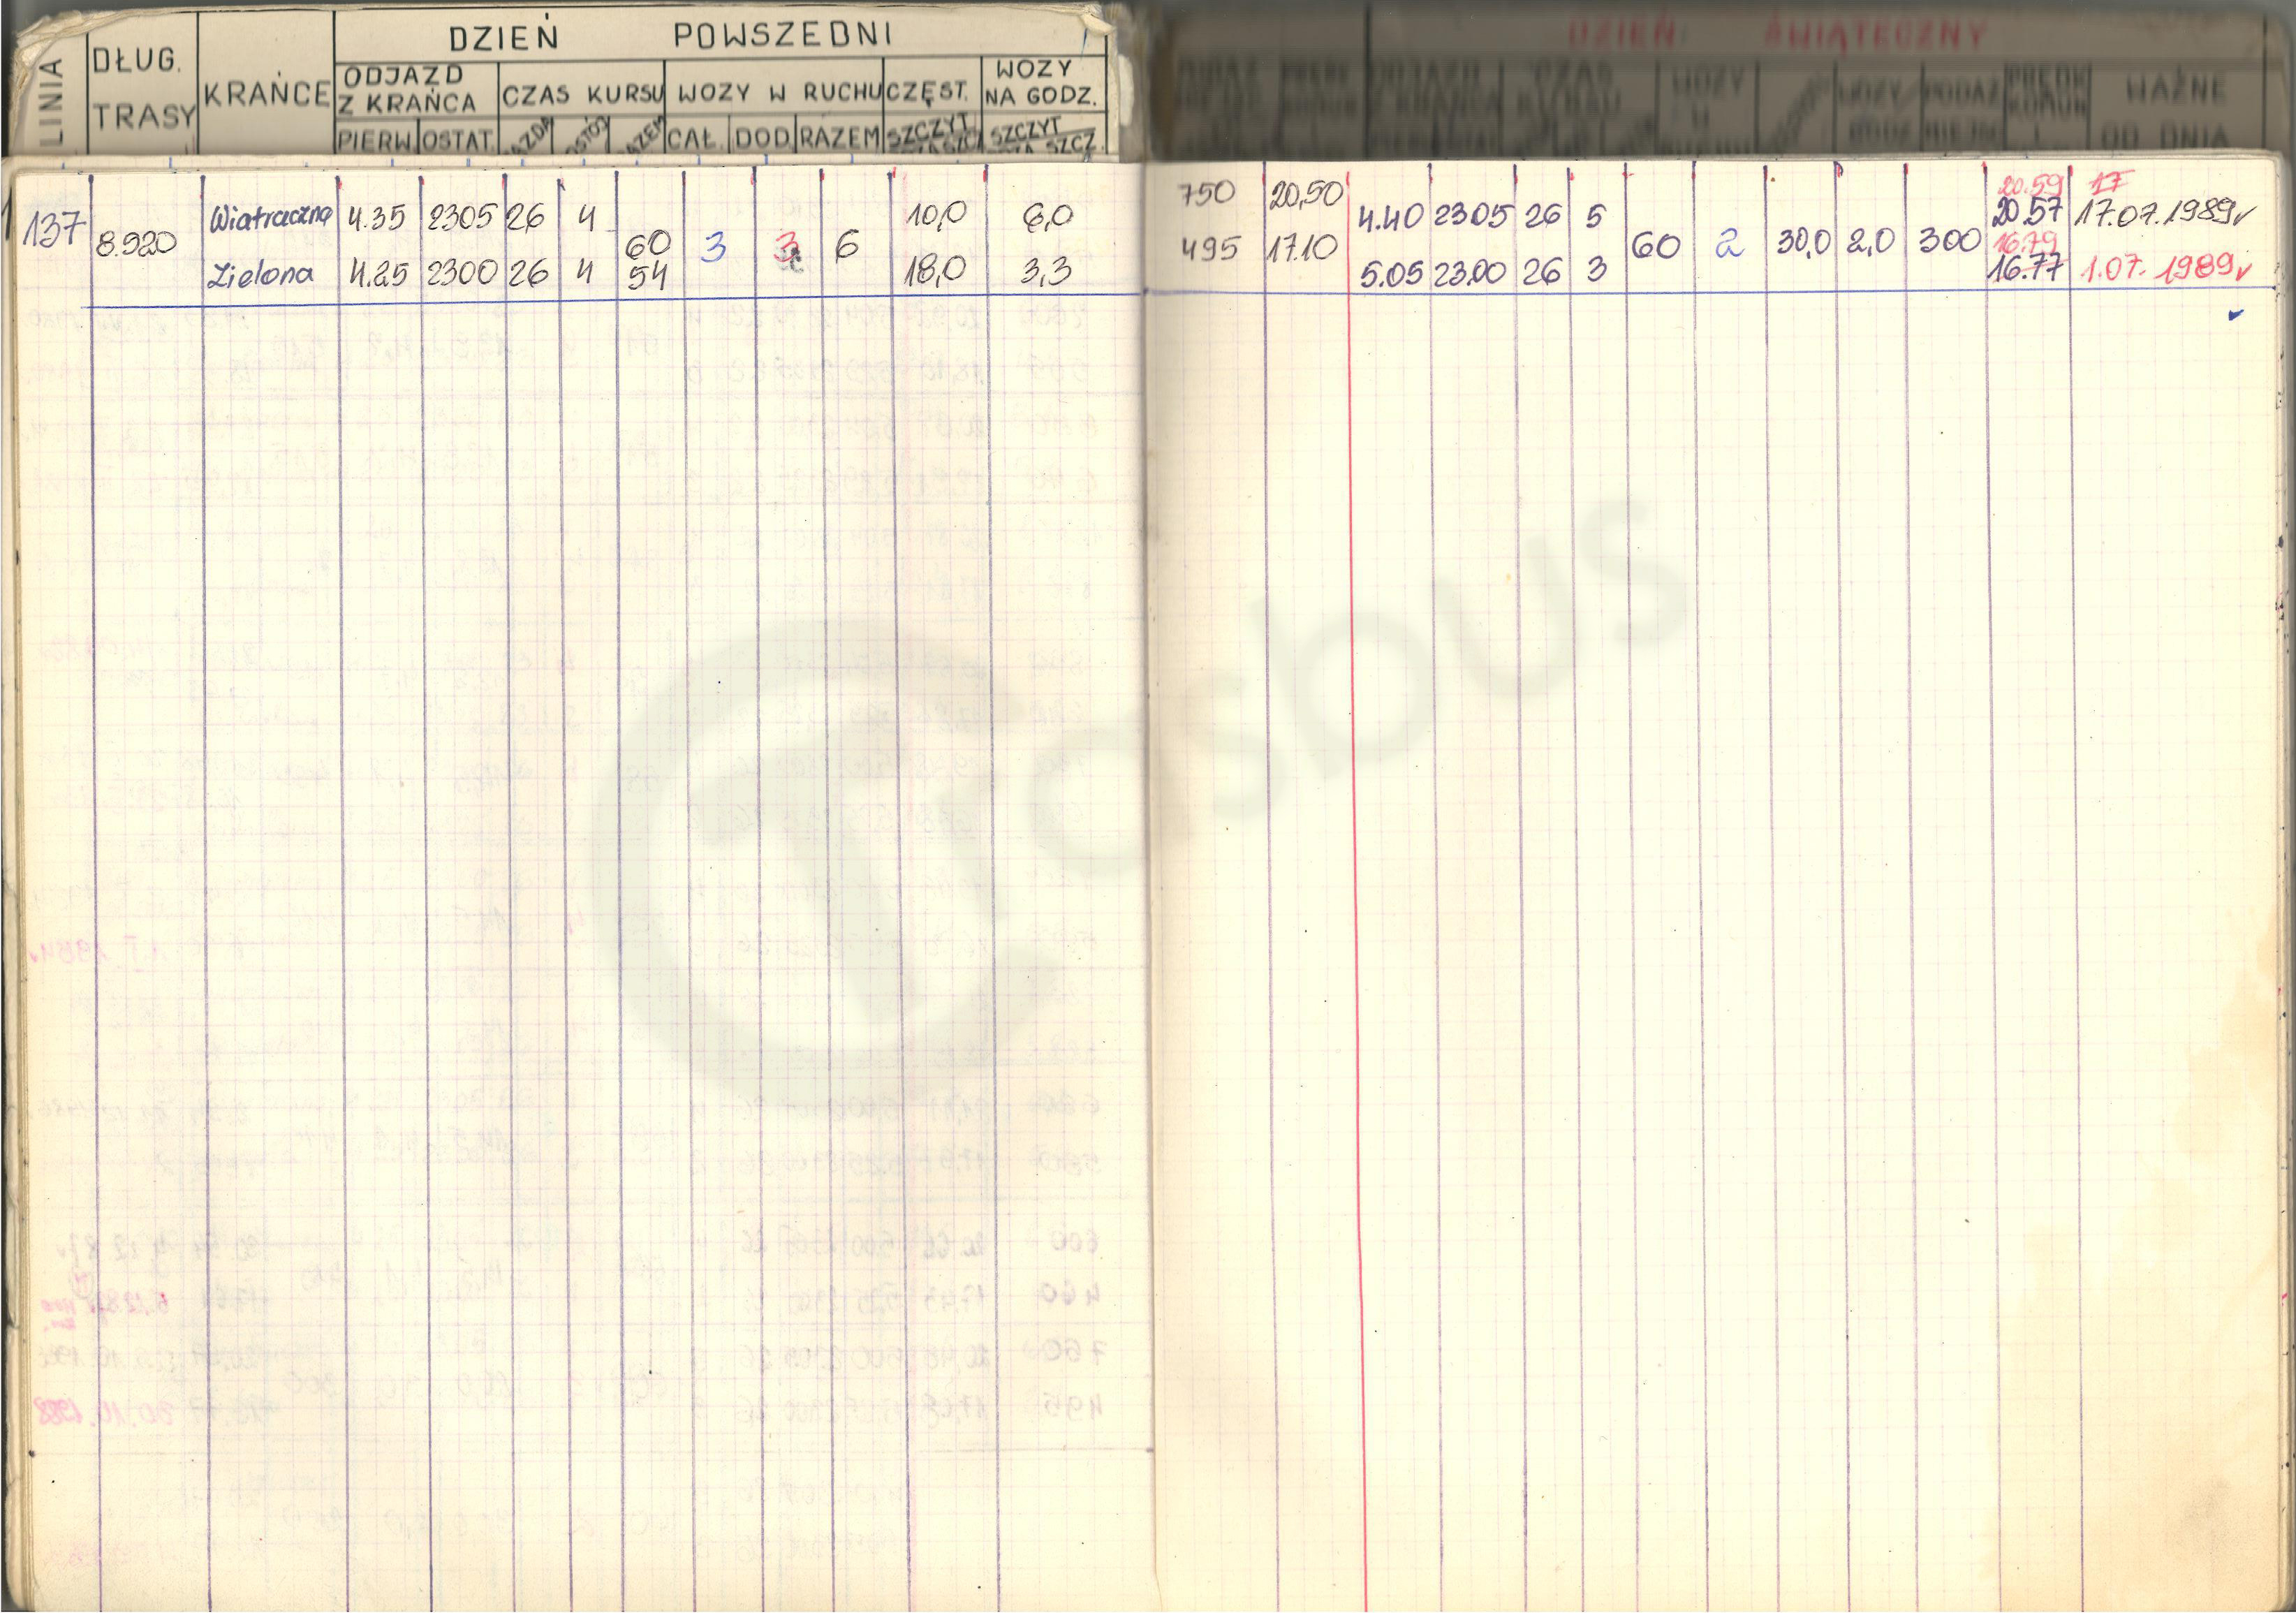 DZIEŃ POWSZEDNI
LINIA
DŁUG. TRASY
KRAŃCE
ODJAZD Z KRAŃCA
CZAS KURSU
WOZY W RUCHU
CZĘST.
WOZY NA GODZ.
PIERW. OSTAT. CAŁ. DOD. RAZEM SZCZYT SZCZYT
DZIEŃ ŚWIĄTECZNY
WAŻNE OD DNIA
137 8.920
Wiatraczna 4.35 2305 26 4 10,0 6,0
60 54 3 3 6
Zielona 4.25 2300 26 4 18,0 3,3
750 20,50 4.40 23.05 26 5 20.59 20.57 17 17.07.1989
495 17.10 60 2 30,0 2,0 300 16.79
5.05 23.00 26 3 16.77 1.07.1989
Trosbus